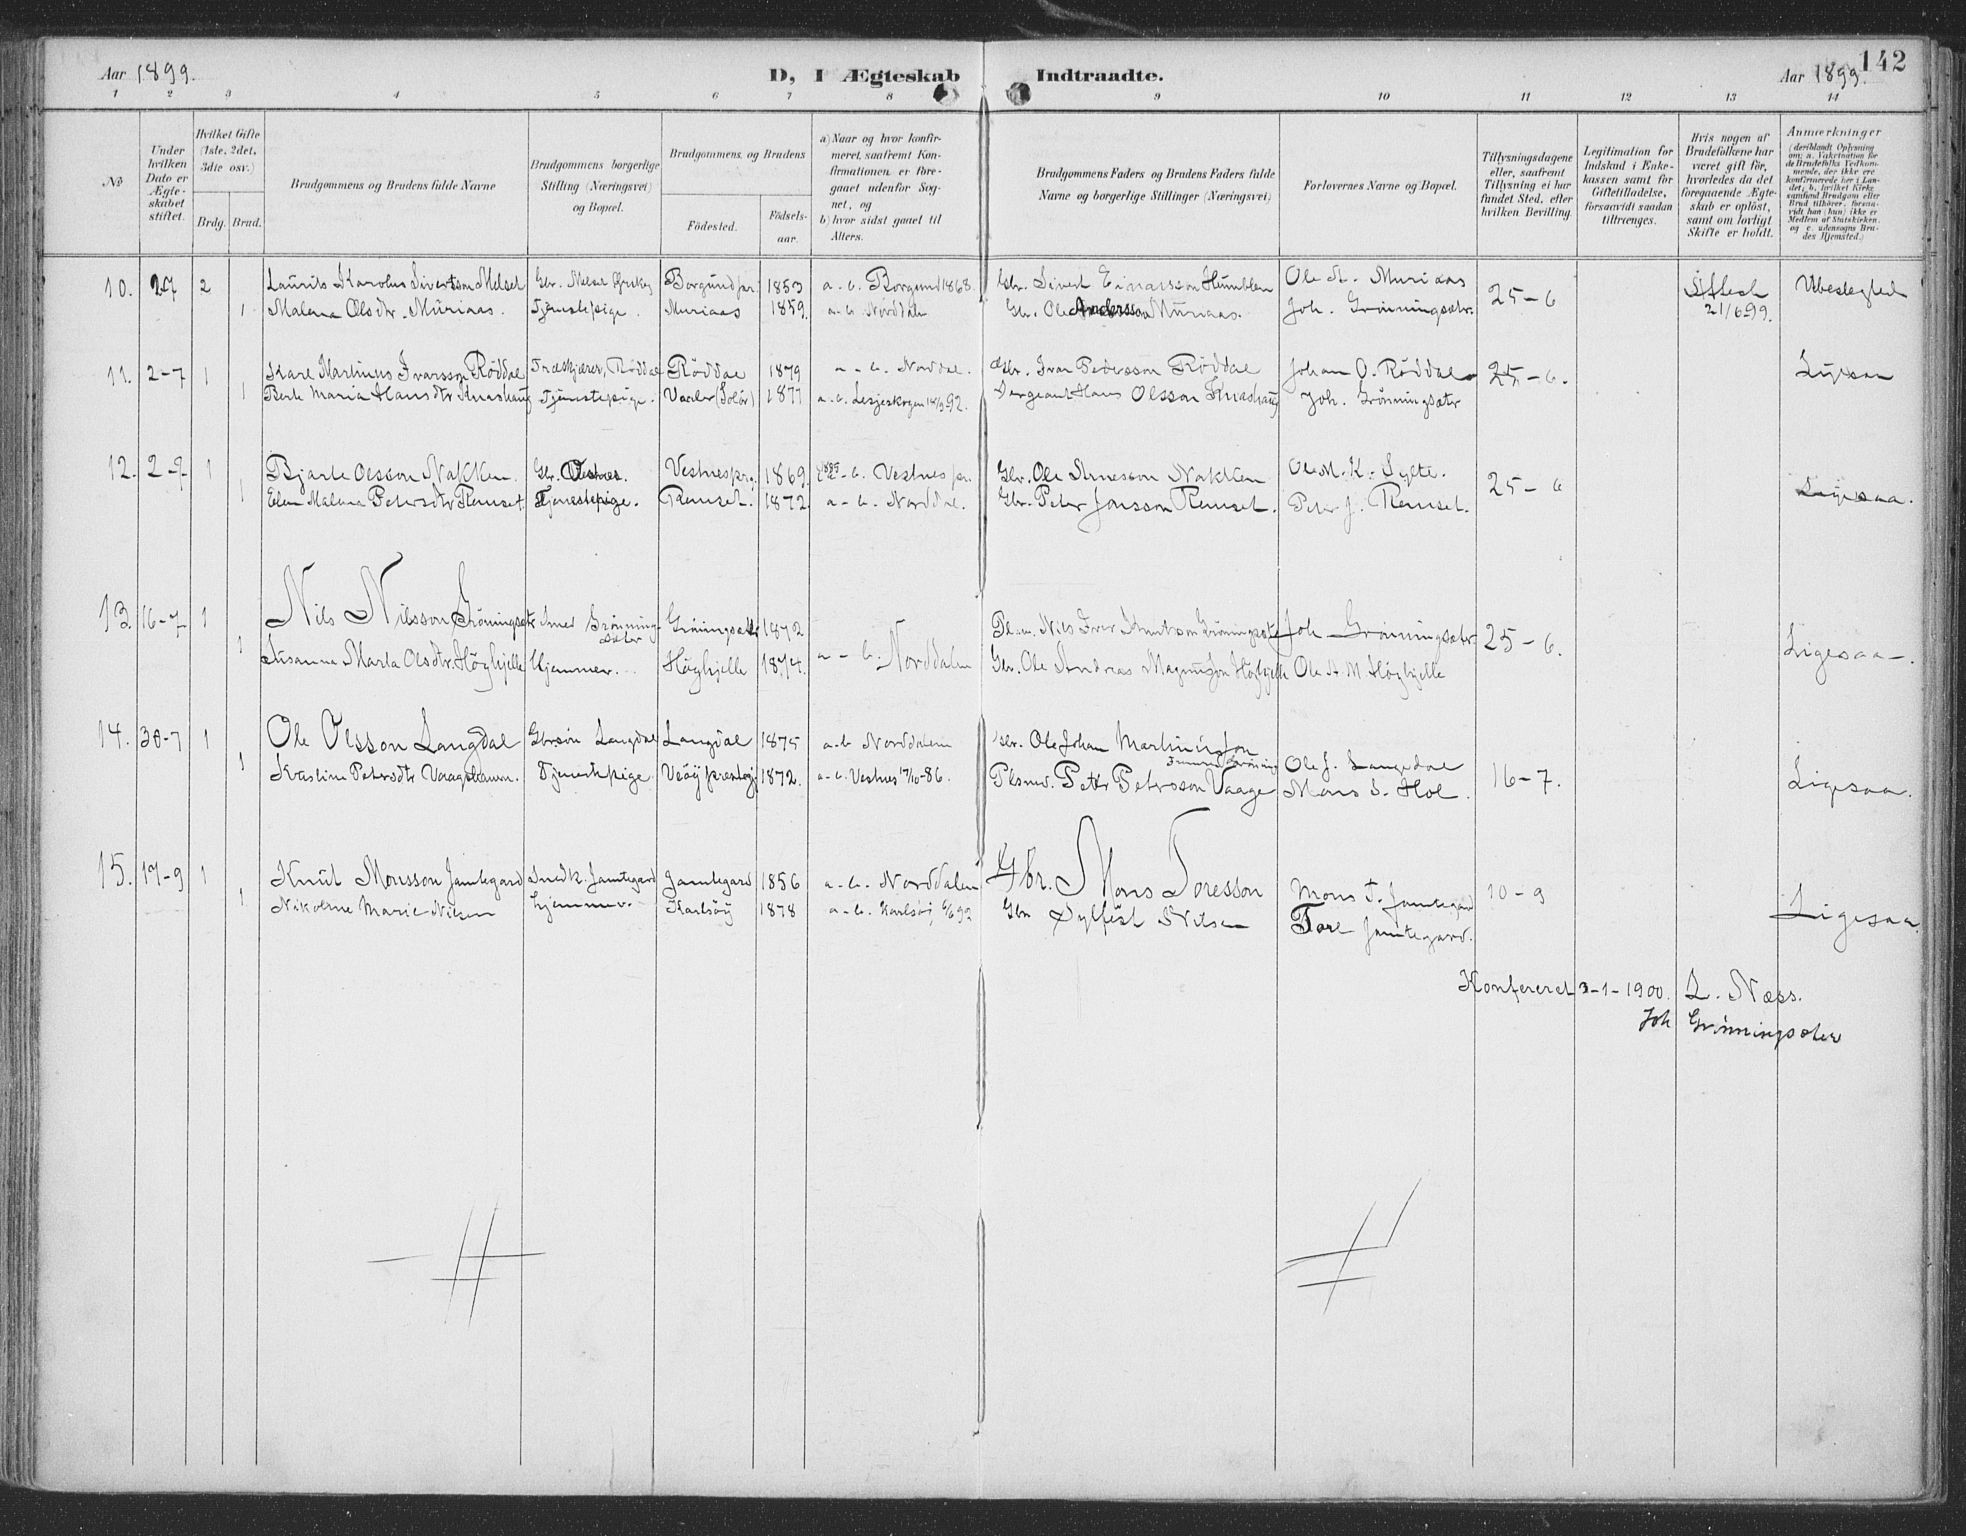 142
Aar 1899.
D, I Ægteskab Indtraadte.
Aar 1899.
1 2 3 4 5 6 7 8 9 10 11 12 13 14
No
Under hvilken Dato er Ægteskabet stiftet.
Hvilket Gifte (1ste, 2det, 3die osv.)
Brdg. Brud.
Brudgommens og Brudens fulde Navne
Brudgommens borgerlige Stilling (Næringsvei) og Bopæl.
Brudgommens og Brudens
Fødested.
Fødselsaar.
a) Naar og hvor konfirmeret, saafremt Konfirmationen er foregaaet udenfor Sognet, og
b) hvor sidst gaaet til Alters.
Brudgommens Faders og Brudens Faders fulde Navne og borgerlige Stillinger (Næringsvei)
Forlovernes Navne og Bopæl.
Tillysningsdagene eller, saafremt Tillysning ei har fundet Sted, efter hvilken Bevilling.
Legitimation for Indskud i Enkekassen samt for Giftetilladelse, forsaavidt saadan tiltrænges.
Hvis nogen af Brudefolkene har været gift før, hvorledes da det foregaaende Ægteskab er opløst, samt om lovligt Skifte er holdt.
Anmærkninger (deriblandt Oplysning om: a. Vakcination for de Brudefolks Vedkommende, der ikke ere konfirmerede her i Landet; b. hvilket Kirkesamfund Brudgom eller Brud tilhører, forsaavidt han (hun) ikke er Medlem af Statskirken, og c. udensogns Brudes Hjemsted.)
10. 2-7 2 Laurits Karolus Sivertson Melset Gbr. Melset Borgund pr. 1853 a. b. Borgund 1868. Gbr. Sivert Einarsson Humblen Ole A. Muriaas 25-6 21/6 99. Ubeslegted
1 Malena Olsdtr. Muriaas. Tjenestepige. Muriaas 1859. a-b Norddalen Gbr. Ole Andersson Muriaas. Joh. Grønningsæter.
11. 2-7 1 Karl Martinus Ivarsson Røddal Træskjærer, Røddal Røddal 1879 a-b. Norddal. Gbr. Ivar Pedersson Røddal Johan O. Røddal 25-6. Ligesaa
1 Berte Maria Hansdtr Knashaug Tjenestepige. Vaaler (Solør) 1877 a.b. Lesjeskogen 18/9 92. Sergeant Hans Olsson Knashaug Joh. Grønningsæter
12. 2-7 1 Bjarte Olsson Nakken Gbr. Vestnes. Vestnes prg. 1869. a-b. Vestnes pr. Gbr. Ole Arnesson Nakken Ole M. K. Sylte. 25-6 Ligesaa.
1 Elen Malena Petersdtr Remset. Tjenestepige. Remset. 1872. a-b. Norddal. Gbr. Peter Jonsson Remset. Peter J. Remset.
13. 16-7 1 Nils Nilsson Grønningsætr Smed Grønningsæter Grønningsæter 1872 a-b. Norddalen Nils Iver Knutson Grønningsæter Joh Grønningsæter 25-6. Ligesaa.
1 Susanna Marta Olsdtr. Høghjelle Hjemmev. Høghjelle 1874. Gbr. Ole Andreas Magnusson Høghjelle Ole A. M Høghjelle
14. 30-7 1 Ole Olsson Langdal Gbrsøn Langdal Langdal 1875 a-b Norddalen Gbr. Ole Johan Martinusson Ole J. Langdal 16-7. Ligesaa.
1 Kristine Petersdtr Vaagshamn. Tjenestepige Veøy prestegj 1872. a-b. Vestnes 17/10-86. Plsmd. Peter Petersson Vaage Mons S. Hol.
15. 17-9 1 Knut Monsson Jamtegard Snedk. Jamtegard Jamtegard 1856 a-b. Norddalen Gbr. Mons Toresson Mons T. Jamtegard 10-9 Ligesaa.
1 Nikoline Marie Nilsen hjemmev. Karlsøy 1878 a-b. Karlsøy Gbr Sylfest Nilsen Tore Jamtegard.
Konfereret 3-1-1900. L. Næss.
Joh Grønningsæter